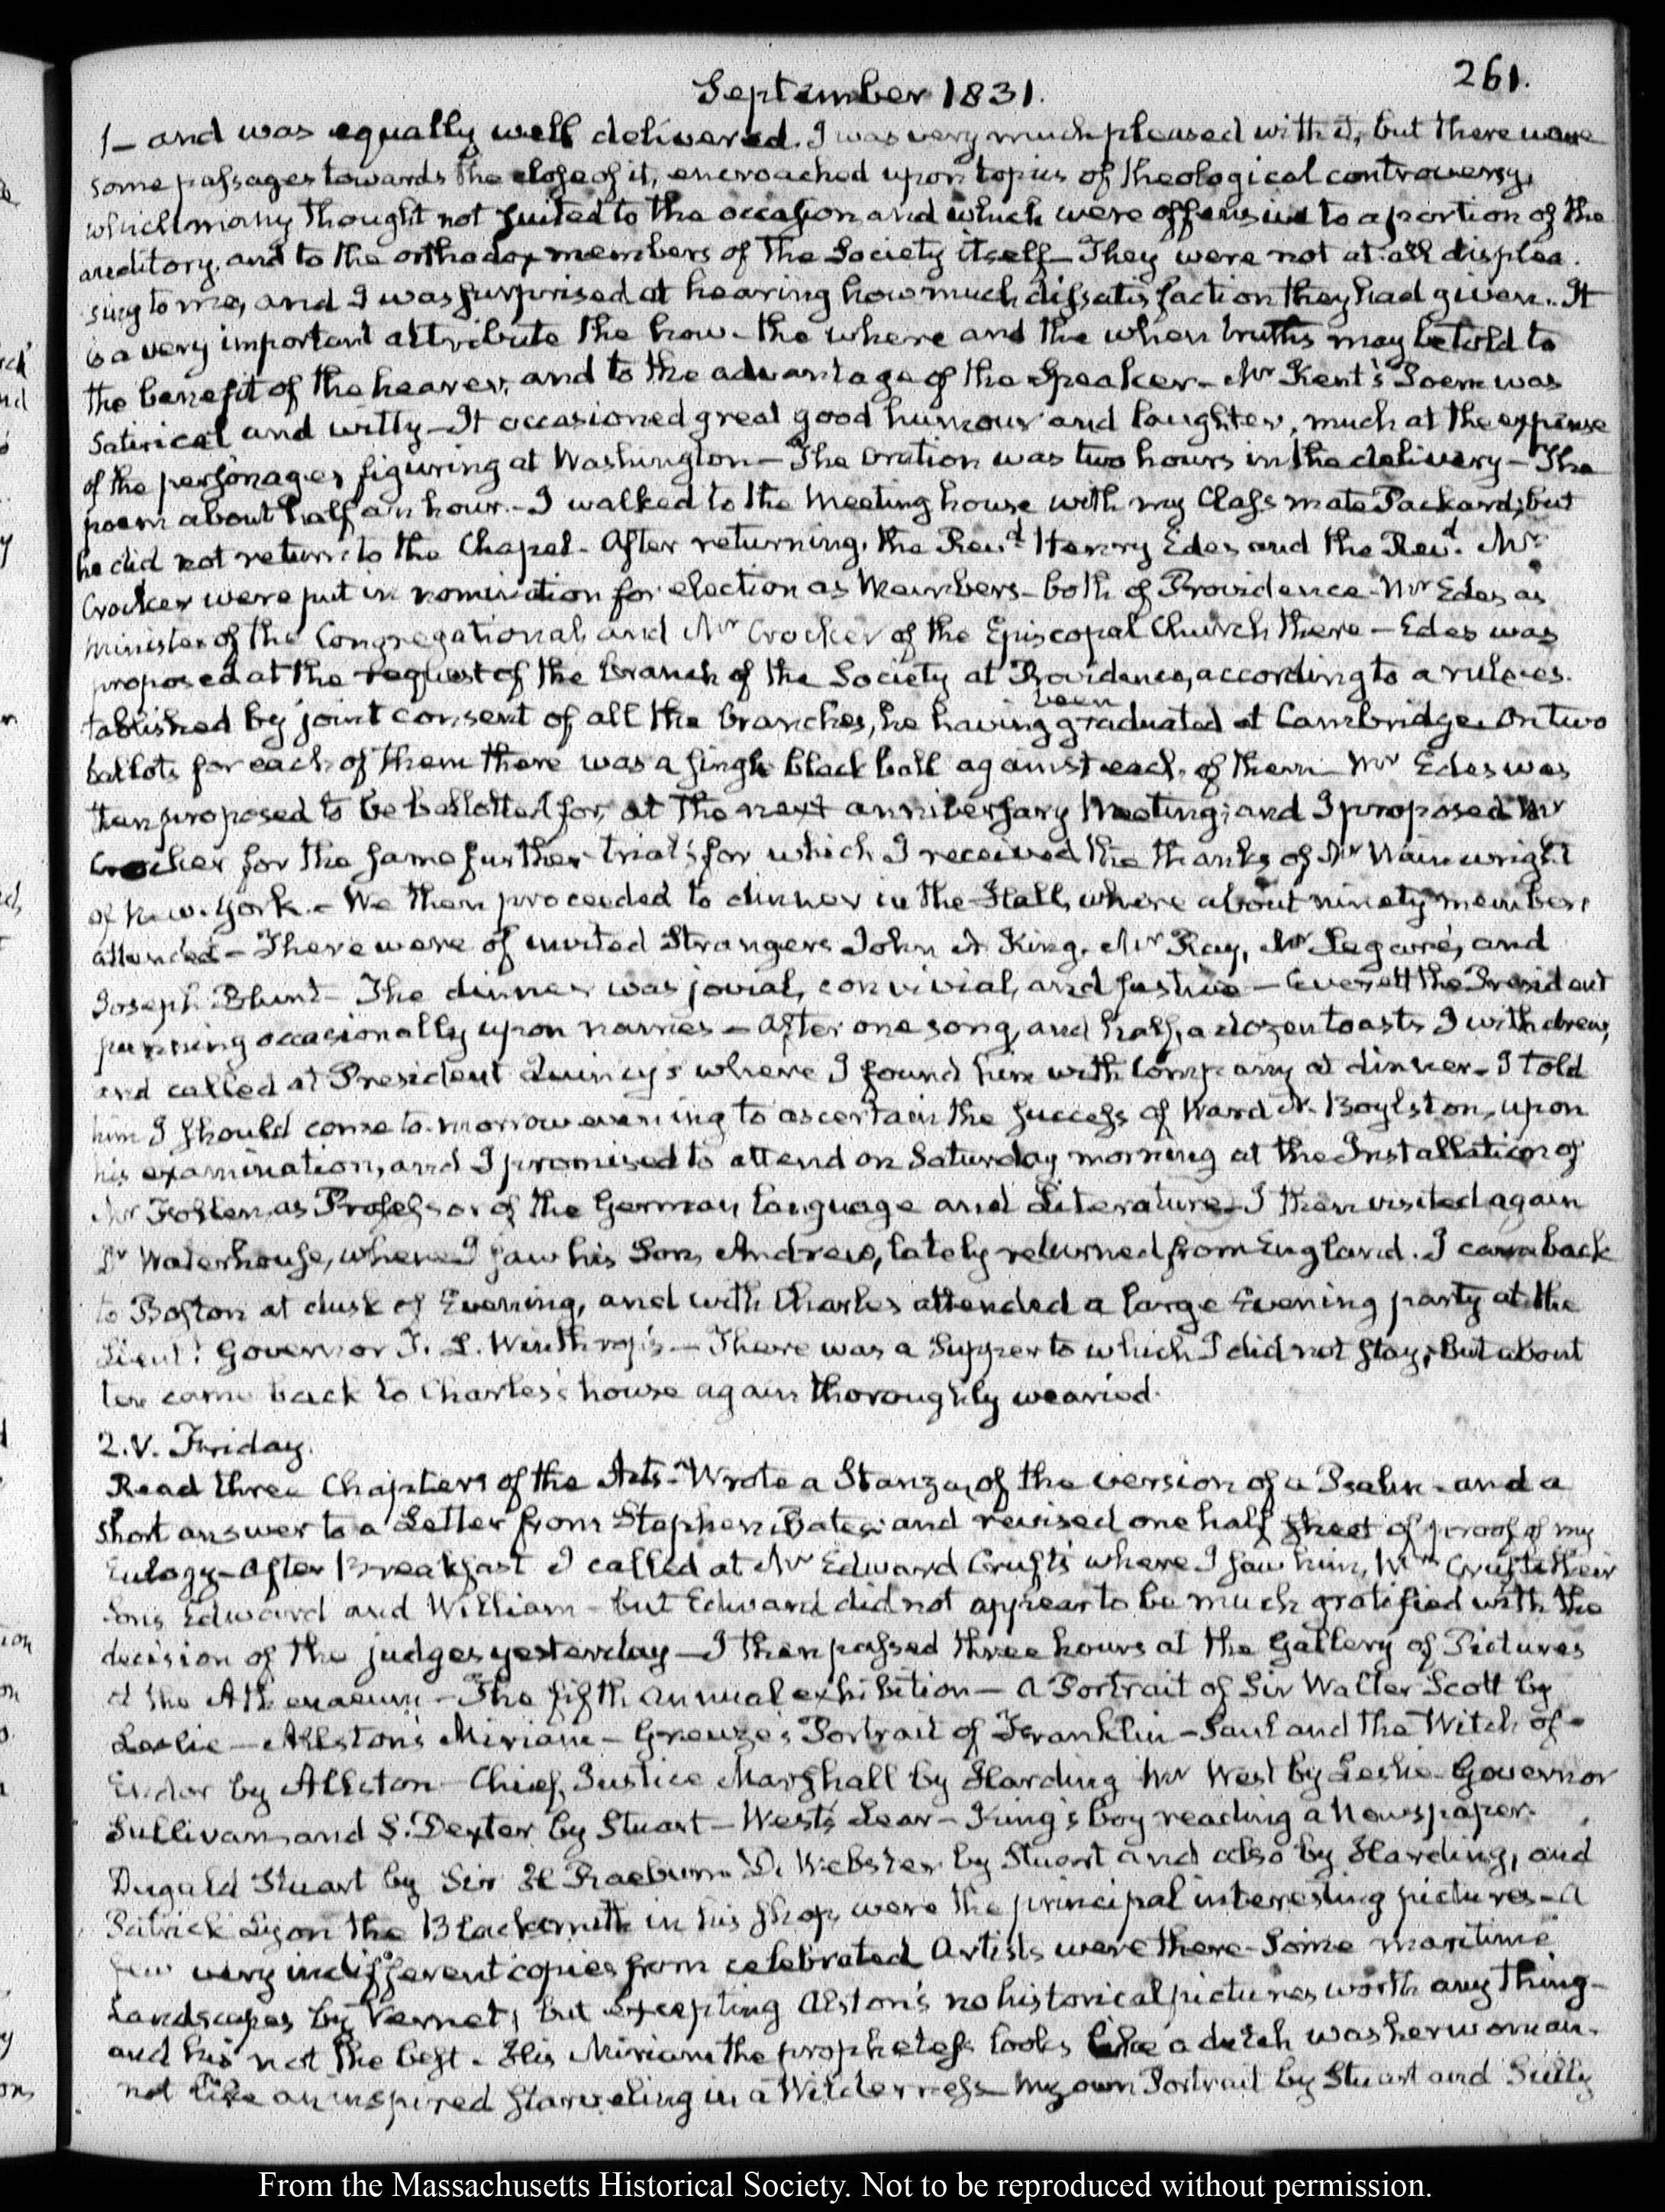 261.
September 1831.
1 — and was equally well delivered. I was very much pleased with it, but there were
some passages towards the close of it, encroached upon topics of theological controversy,
which many thought not suited to the occasion and which were offensive to a portion of the
auditory, and to the orthodox members of the Society itself — They were not at all displea-
sing to me, and I was surprised at hearing how much dissatisfaction they had given. It
is a very important attribute the how - the where and the when truths may be told to
the benefit of the hearer, and to the advantage of the Speaker — Mr Kent's Poem was
Satirical and witty — It occasioned great good humour and laughter, much at the expense
of the personages figuring at Washington — The Oration was two hours in the delivery — The
poem about half an hour. — I walked to the Meeting house with my Class mate Packard; but
he did not return to the Chapel - After returning, the Revd Henry Edes and the Revd. Mr
Crocker were put in nomination for election as Members - both of Providence - Mr Edes as
Minister of the Congregational, and Mr Crocker of the Episcopal Church there — Edes was
proposed at the request of the Branch of the Society at Providence, according to a rule es-
tablished by joint consent of all the branches, he having been graduated at Cambridge. On two
ballots for each of them there was a single black ball against each of them — Mr Edes was
then proposed to be ballotted for, at the next anniversary Meeting; and I proposed Mr
Crocker for the same further trial; for which I received the thanks of Dr Wainwright
of New-York. — We then proceeded to dinner in the Hall, where about ninety members
attended — There were of invited Strangers John A King, Mr Ray, Mr Legaré, and
Joseph Blunt — The dinner was jovial, convivial, and festive — Everett the President
punning occasionally upon names — After one song, and half a dozen toasts I withdrew,
and called at President Quincy's where I found him with Company at dinner — I told
him I should come to-morrow evening to ascertain the success of Ward N. Boylston, upon
his examination, and I promised to attend on Saturday morning at the Installation of
Mr Follen, as Professor of the German language and Literature — I then visited again
Dr Waterhouse, where I saw his Son, Andrew, lately returned from England. I came back
to Boston at dusk of Evening, and with Charles attended a large Evening party at the
Lieutt Governor T. L. Winthrop's — There was a Supper to which I did not stay; but about
ten came back to Charles's house again thoroughly wearied.
2. V. Friday.
Read three Chapters of the Acts — Wrote a Stanza, of the version of a Psalm - and a
short answer to a Letter from Stephen Bates; and revised one half sheet of proof of my
Eulogy — After Breakfast I called at Mr Edward Cruft's where I saw him, Mrs Cruft their
Sons Edward and William — but Edward did not appear to be much gratified with the
decision of the judges yesterday — I then passed three hours at the Gallery of Pictures
at the Athenaeum — The fifth annual exhibition — A Portrait of Sir Walter Scott by
Leslie — Allston's Miriam — Greuze's Portrait of Franklin — Saul and the Witch of
Endor by Allston — Chief Justice Marshall by Harding Mr West by Leslie - Governor
Sullivan and S. Dexter by Stuart — West's Lear — King's boy reading a Newspaper.
Dugald Stuart by Sir H Raeburn D. Webster by Stuart and also by Harding, and
Patrick Lyon the Blacksmith in his shop, were the principal interesting pictures — A
few very indifferent copies from celebrated Artists were there - Some maritime
Landscapes by Vernet, but excepting Alston's no historical pictures worth any thing —
and his not the best. His Miriam the prophetess looks like a dutch washerwoman.
not like an inspired starveling in a Wilderness — My own Portrait by Stuart and Sully
From the Massachusetts Historical Society. Not to be reproduced without permission.